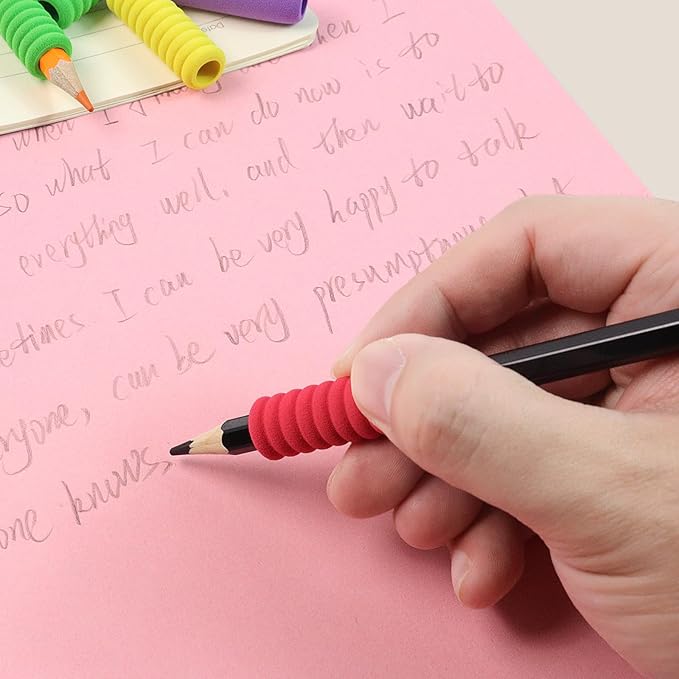 Date
when I
when I are
so what I can do now is to
everything well, and then wait to
I can be very happy to talk
I can be very presumptuous
everyone, can be very
one knows